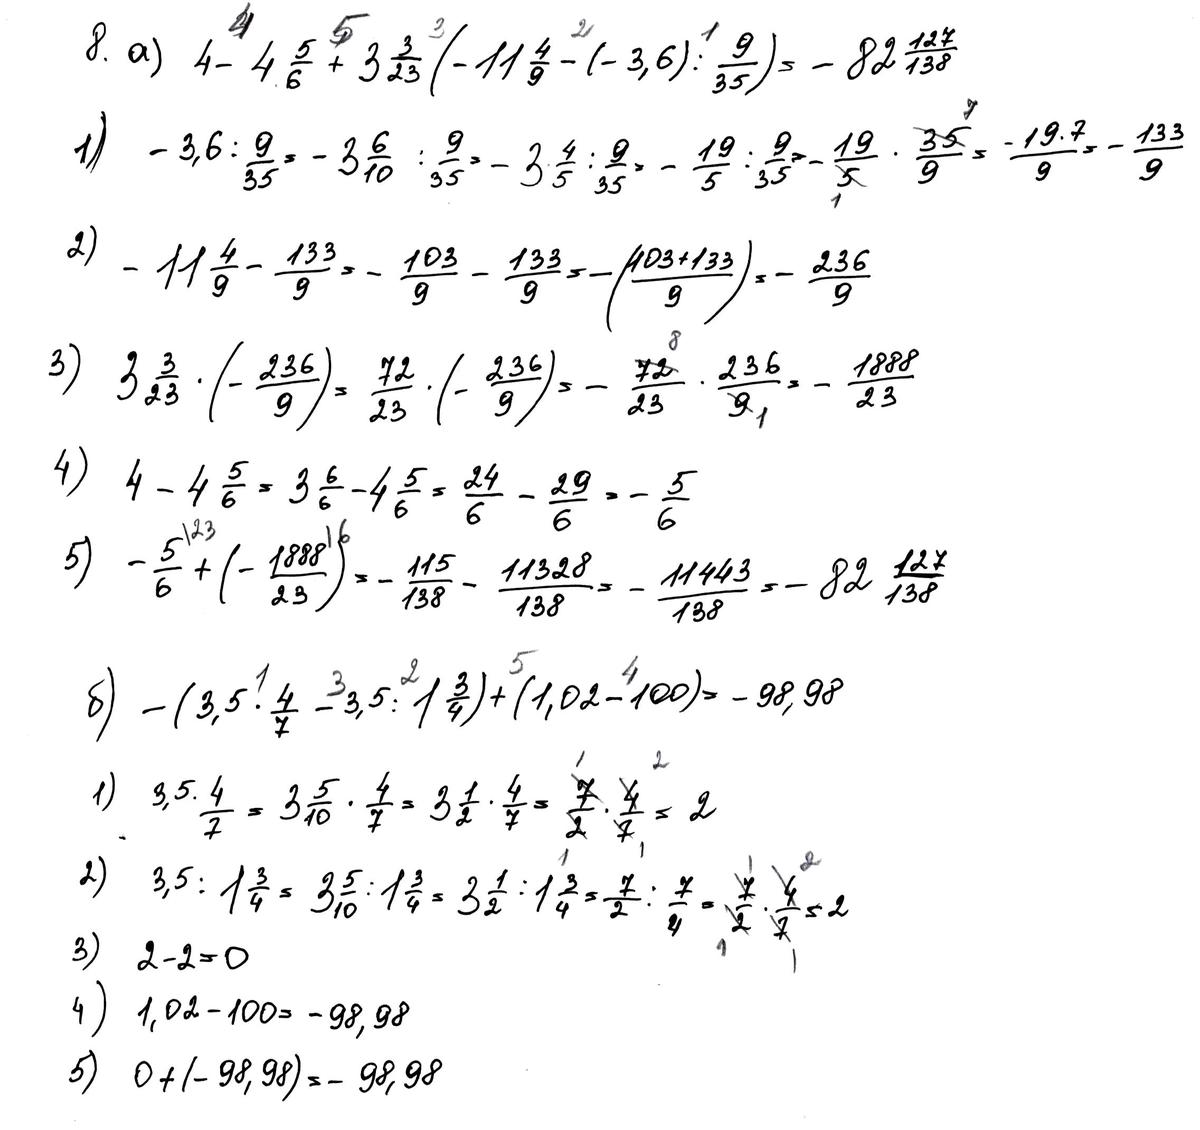 8. а) 4 - 4 5/6 + 3 3/23 (-11 4/9 - (-3,6) : 9/35) = - 82 127/138
1) - 3,6 : 9/35 = - 3 6/10 : 9/35 = - 3 4/5 : 9/35 = - 19/5 : 9/35 = - 19/5 · 35/9 = -19·7/9 = - 133/9
2) - 11 4/9 - 133/9 = - 103/9 - 133/9 = - (103+133/9) = - 236/9
3) 3 3/23 · (- 236/9) = 72/23 · (- 236/9) = - 72/23 · 236/9 = - 1888/23
4) 4 - 4 5/6 = 3 6/6 - 4 5/6 = 24/6 - 29/6 = - 5/6
5) - 5/6 \23 + (- 1888/23 \6) = - 115/138 - 11328/138 = - 11443/138 = - 82 127/138
б) - (3,5 · 4/7 - 3,5 : 1 3/4) + (1,02 - 100) = - 98,98
1) 3,5 · 4/7 = 3 5/10 · 4/7 = 3 1/2 · 4/7 = 7/2 · 4/7 = 2
2) 3,5 : 1 3/4 = 3 5/10 : 1 3/4 = 3 1/2 : 1 3/4 = 7/2 : 7/4 = 7/2 · 4/7 = 2
3) 2 - 2 = 0
4) 1,02 - 100 = - 98,98
5) 0 + (- 98,98) = - 98,98